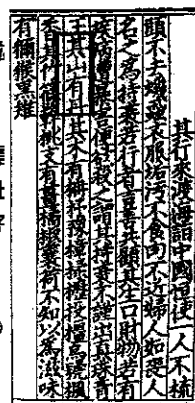 其行來渡海詣中國恒使一人不梳
頭不去蟣蝨衣服垢污不食肉不近婦人如喪人
名之為持衰若行者吉善共顧其生口財物若有
疾病遭暴害便欲殺之謂其持衰不謹出真珠青
玉其山有丹其木有柟杼豫樟楺櫪投橿烏號楓
香其竹篠簳桃支有薑橘椒蘘荷不知以為滋味
有獮猴黑雉